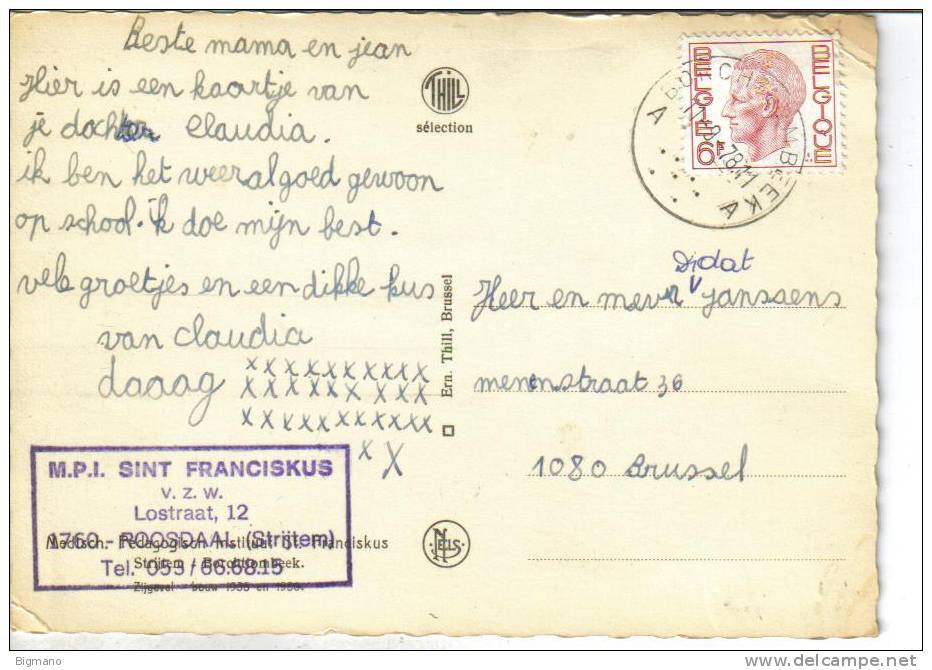 Beste mama en jean
Hier is een kaartje van
je dochter Claudia.
ik ben het weeral goed gewoon
op school. ik doe mijn best.
vele groetjes en een dikke kus
van Claudia
daaag
x x x x x x x x x x
x x x x x x x x x
x x x x x x x x x x
x X
THILL
sélection
BELGIE 6F
BELGIQUE
A
78.11
A
Didat
Heer en mevr V janssens
menenstraat 36
1080 Brussel
Ern. Thill, Brussel
NELS
M.P.I. SINT FRANCISKUS
v. z. w.
Lostraat, 12
1760 - ROOSDAAL (Strijtem)
Tel. 053/66.68.15
Medisch. Pedagogisch Instituut St. Franciskus
Strijtem / Borchtlombeek.
Zijgevel - bouw 1935 en
Bigmano
www.delcampe.net